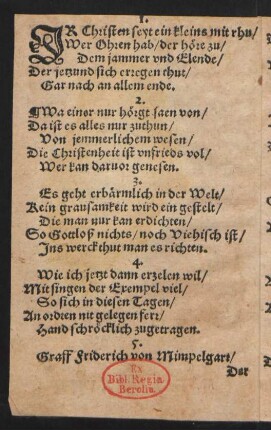 1.
IR Christen seyt ein kleins mit rhu/
Wer Ohren hab/ der höre zu/
Dem jammer vnd Elende/
Der jetzund sich erregen thut/
Gar nach an allem ende.
2.
Wa einer nur hörgt saen von/
Da ist es alles nur zuthun/
Von jemmerlichem wesen/
Die Christenheit ist vnfrieds vol/
Wer kan daruor genesen.
3.
Es geht erbärmlich in der Welt/
Kein grausamkeit wird ein gestelt/
Die man nur kan erdichten/
So Gottloß nichts/ noch Viehisch ist/
Ins werck thut man es richten.
4.
Wie ich jetzt dann erzelen wil/
Mit singen der Exempel viel/
So sich in diesen Tagen/
An ordten nit gelegen ferr/
Hand schröcklich zugetragen.
5.
Graff Friderich von Mimpelgart/
Der
Ex
Bibl. Regia
Berolin.